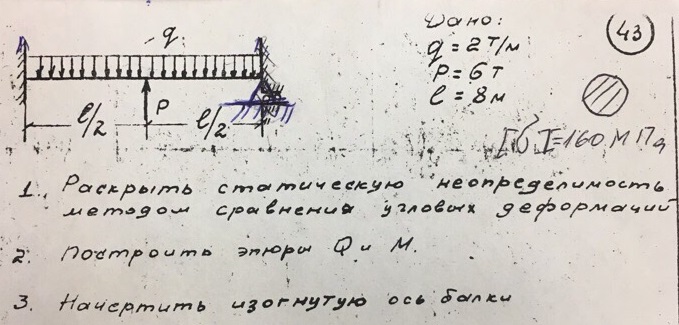 q
P
l/2
l/2
Дано:
q = 2 т/м
P = 6 т
l = 8 м
43
[σ] = 160 МПа
1. Раскрыть статическую неопределимость
методом сравнения угловых деформаций
2. Построить эпюры Q и M.
3. Начертить изогнутую ось балки